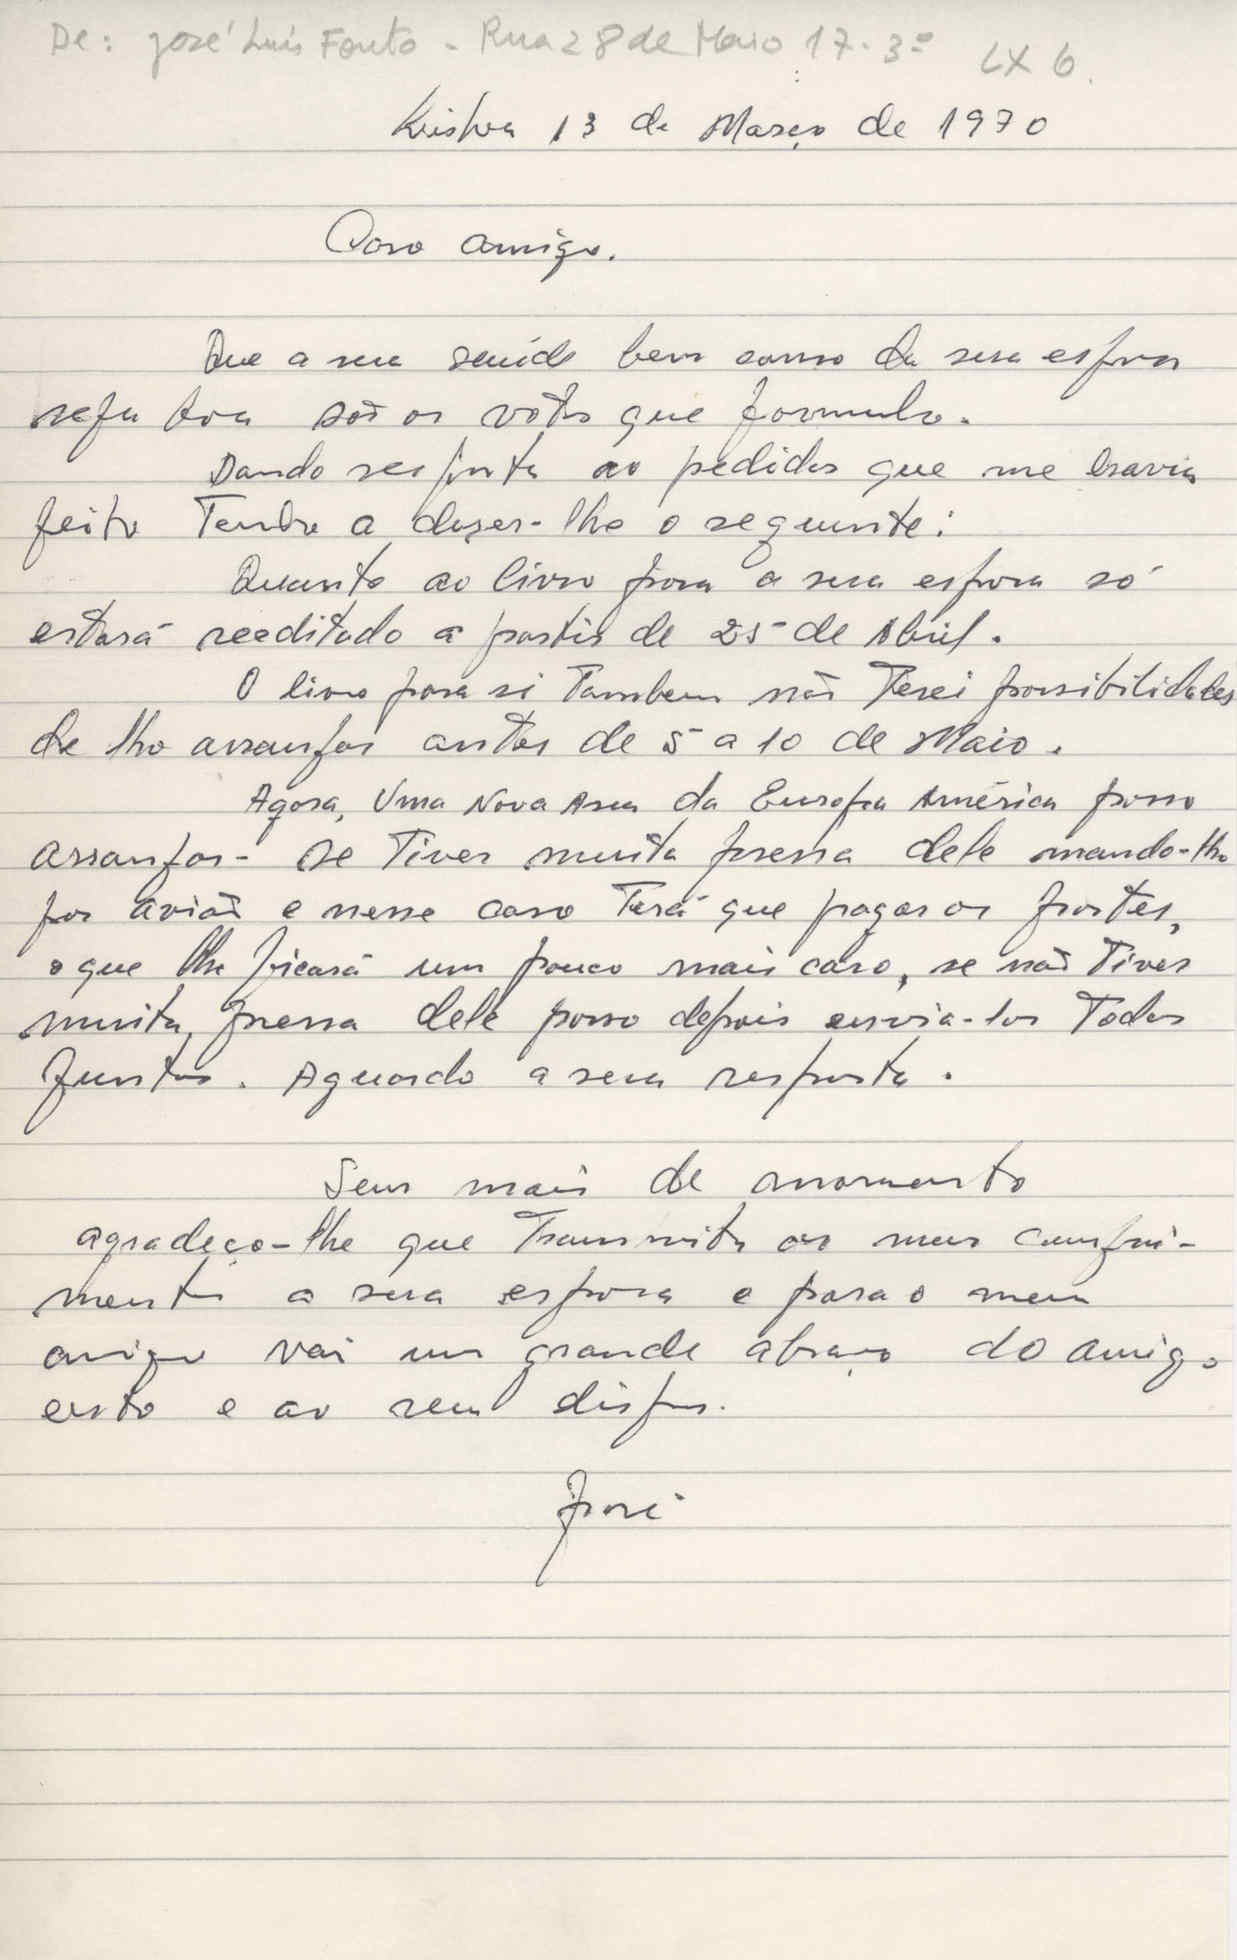 De: José Luís Fouto - Rua 28 de Maio 17. 3º LX 6.
Lisboa 13 de Março de 1970
Caro amigo.
Que a sua saúde bem como da sua esposa
seja boa são os votos que formulo.
Dando resposta ao pedidos que me havia
feito Tenho a dizer-lhe o seguinte:
Quanto ao livro para a sua esposa só
estará reeditado a partir de 25 de Abril.
O livro para si Tambem não Terei possibilidades
de lho arranjar antes de 5 a 10 de Maio.
Agora, Uma Nova Asia da Europa América posso
arranjar - se Tiver muita pressa dele mando-lho
por avião e nesse caso Terá que pagar os portes,
o que lhe ficará um pouco mais caro, se não Tiver
muita pressa dele posso depois envia-los Todos
Juntos. Aguardo a sua resposta.
Sem mais de momento
agradeço-lhe que Transmita os meus cumpri-
mentos a sua esposa e para o meu
amigo vai um grande abraço do amigo
certo e ao seu dispor.
José